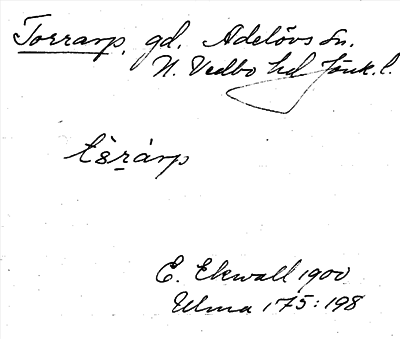 Torrarp. gd. Adelövs sn.
N. Vedbo hd Jönk. l.
E. Ekwall 1900
Ulma 175:198